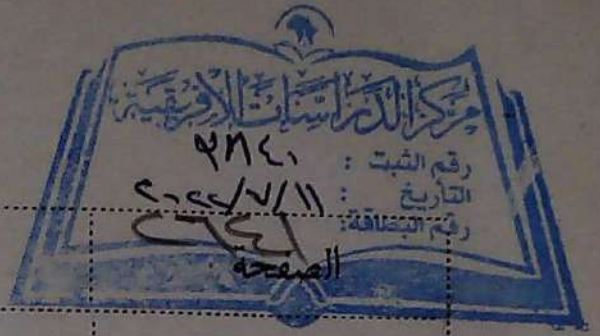 مركز الدراسات الأفريقية
رقم الثبت : ٢٨٤٠
التأريخ : ٢٠٢٢/٧/١١
رقم البطاقة: ٢٦٤١
الصفحة